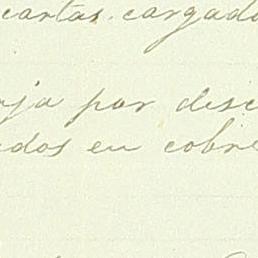 cartas cargado
ja por disc
dos en cobre